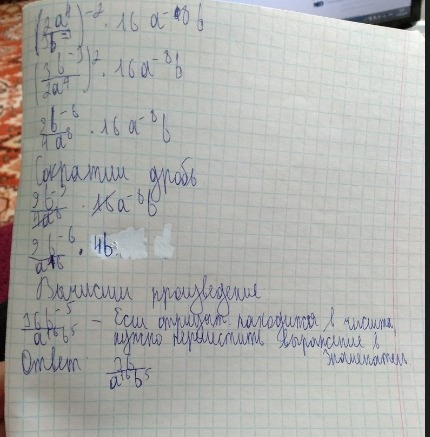 (2a⁴/3b⁻³)⁻² · 16 a⁻⁸ b
(3b⁻³/2a⁴)² · 16a⁻⁸b
9b⁻⁶/4a⁸ · 16 a⁻⁸ b
Сократим дробь
9b⁻⁶/4a⁸ · 16a⁻⁸b
9b⁻⁶/a¹⁶ · 4b
Вычислим произведение
36b⁻⁵/a¹⁶b⁵ – Если отрицат. находится в числит,
нужно переместить выражение в
знаменатель
Ответ 36/a¹⁶b⁵